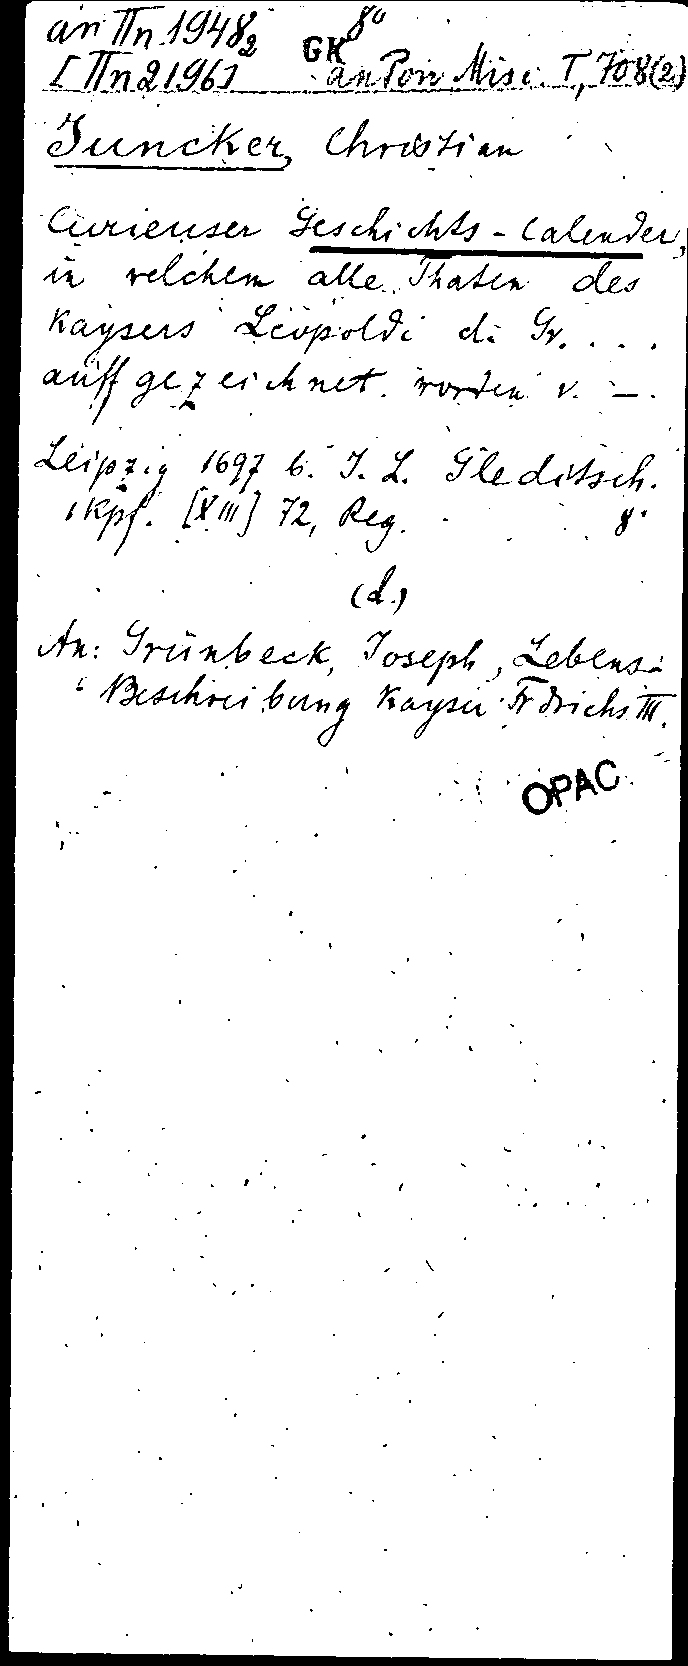 an IIn 1948₂ 8°
[IIn 2196] GK an Pon Misc. I, 708(2)
Juncker, Christian
Curieuser Geschichts-Calender,
in welchem alle Thaten des
Kaysers Leopoldi d. Gr. . . .
auffgezeichnet worden v. —.
Leipzig 1697 b. J. L. Gleditsch.
1 Kpf. [XIII] 72, Reg. 8°
(d.)
An: Grünbeck, Joseph, Lebens-
Beschreibung Kayser Frdrichs III.
OPAC